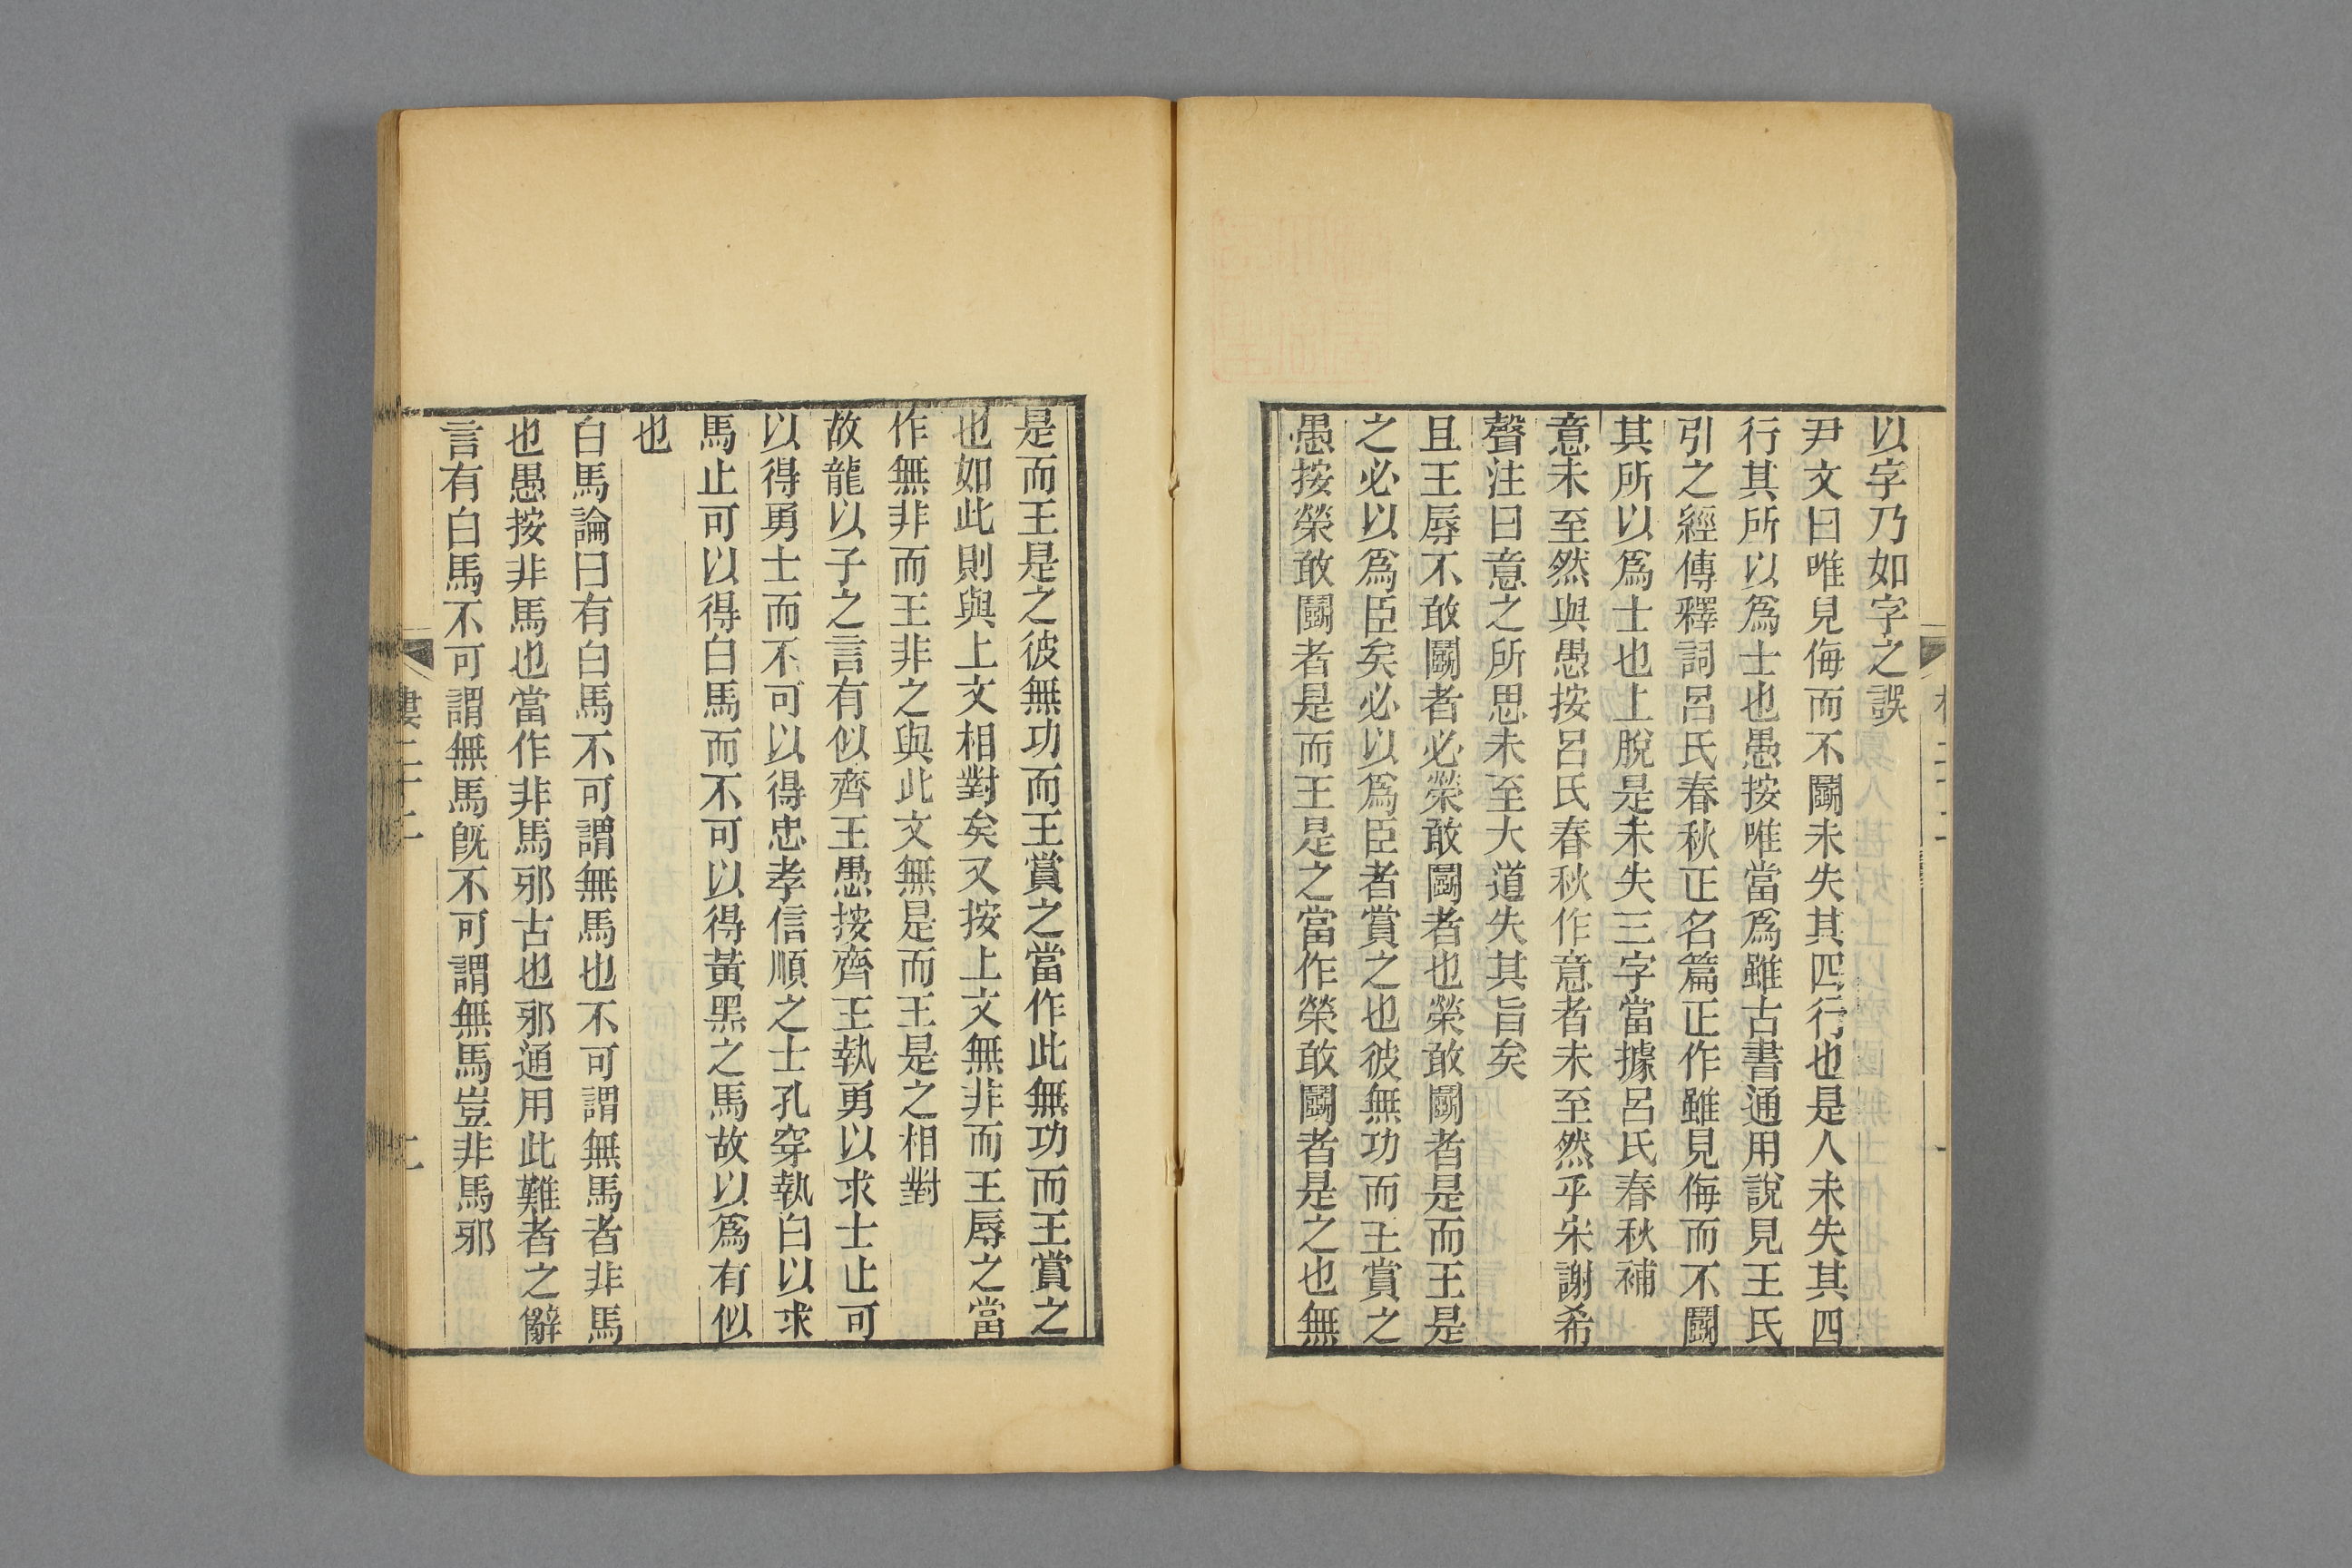 以字乃如字之誤
尹文曰唯見侮而不鬭未失其四行也是人未失其四
行其所以爲士也愚按唯當爲雖古書通用說見王氏
引之經傳釋詞呂氏春秋正名篇正作雖見侮而不鬭
其所以爲士也上脫是未失三字當據呂氏春秋補
意未至然與愚按呂氏春秋作意者未至然乎宋謝希
聲注曰意之所思未至大道失其旨矣
且王辱不敢鬭者必榮敢鬭者也榮敢鬭者是而王是
之必以爲臣矣必以爲臣者賞之也彼無功而王賞之
愚按榮敢鬭者是而王是之當作榮敢鬭者是之也無
是而王是之彼無功而王賞之當作此無功而王賞之
也如此則與上文相對矣又按上文無非而王辱之當
作無非而王非之與此文無是而王是之相對
故龍以子之言有似齊王愚按齊王執勇以求士止可
以得勇士而不可以得忠孝信順之士孔穿執白以求
馬止可以得白馬而不可以得黃黑之馬故以爲有似
也
白馬論曰有白馬不可謂無馬也不可謂無馬者非馬
也愚按非馬也當作非馬邪古也邪通用此難者之辭
言有白馬不可謂無馬旣不可謂無馬豈非馬邪
婁二十二